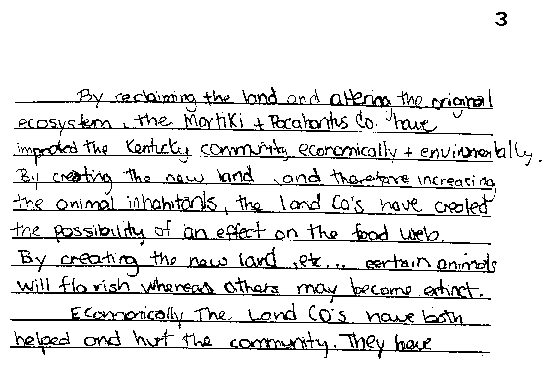 3
By reclaiming the land and altering the original
ecosystem, the Martiki + Pocahontus Co. have
impacted the Kentucky community economically + environmentally.
By creating the new land, and therefore increasing
the animal inhabitants, the land Co's have created
the possibility of an effect on the food web.
By creating the new land, etc... certain animals
will florish whereas others may become extinct.
Economically The Land CO's have both
helped and hurt the community. They have